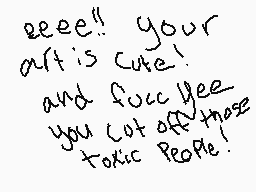 eeee!! your
art is cute!
and fucc yee
you cut off those
toxic people!